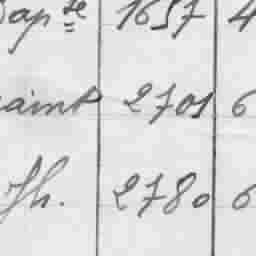 Bapse 1657 4
saint 2701 6
Jh. 2780 6